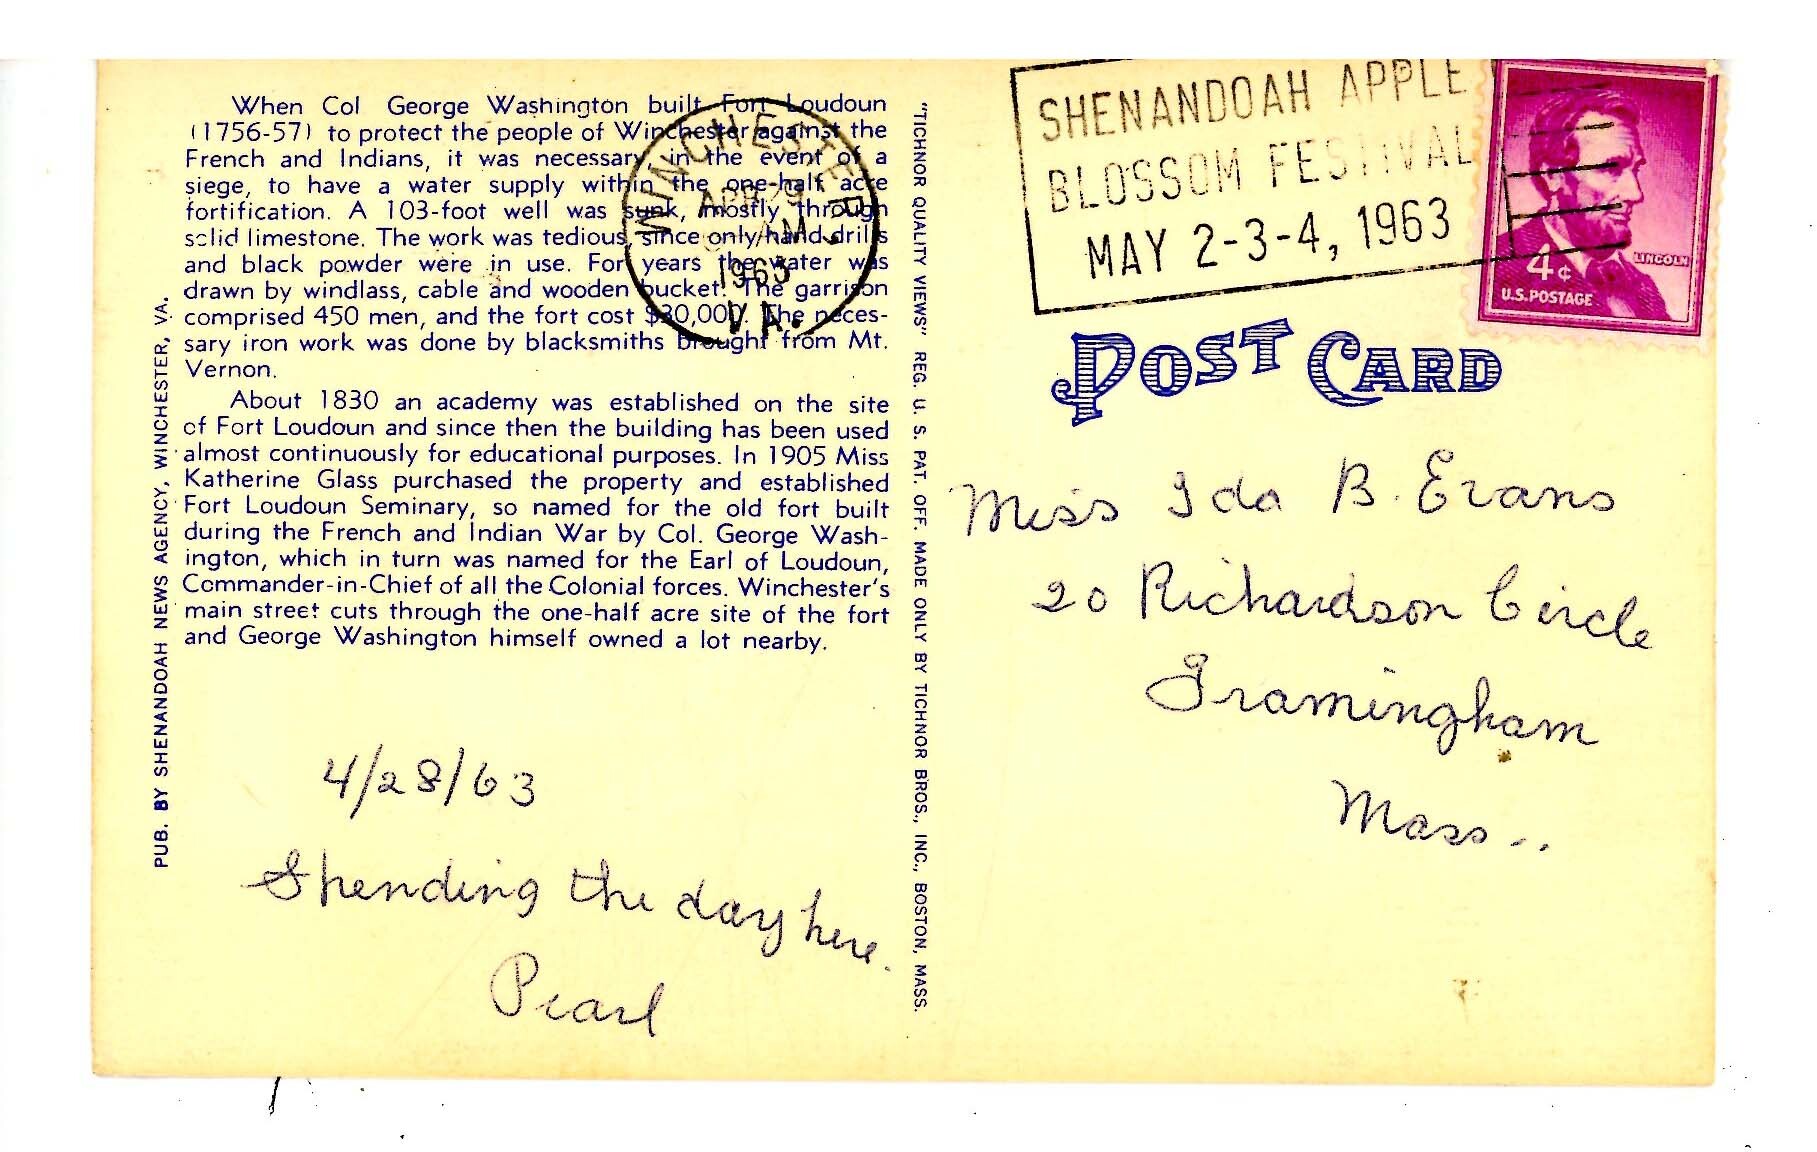 When Col George Washington built Fort Loudoun
(1756-57) to protect the people of Winchester against the
French and Indians, it was necessary, in the event of a
siege, to have a water supply within the one-half acre
fortification. A 103-foot well was sunk, mostly through
solid limestone. The work was tedious, since only hand drills
and black powder were in use. For years the water was
drawn by windlass, cable and wooden bucket. The garrison
comprised 450 men, and the fort cost $30,000. The neces-
sary iron work was done by blacksmiths brought from Mt.
Vernon.
About 1830 an academy was established on the site
of Fort Loudoun and since then the building has been used
almost continuously for educational purposes. In 1905 Miss
Katherine Glass purchased the property and established
Fort Loudoun Seminary, so named for the old fort built
during the French and Indian War by Col. George Wash-
ington, which in turn was named for the Earl of Loudoun,
Commander-in-Chief of all the Colonial forces. Winchester's
main street cuts through the one-half acre site of the fort
and George Washington himself owned a lot nearby.
PUB. BY SHENANDOAH NEWS AGENCY, WINCHESTER, VA.
4/28/63
Spending the day here.
Pearl
"TICHNOR QUALITY VIEWS" REG. U. S. PAT. OFF. MADE ONLY BY TICHNOR BROS., INC., BOSTON, MASS.
WINCHESTER,
APR 29
AM
1963
VA.
SHENANDOAH APPLE
BLOSSOM FESTIVAL
MAY 2-3-4, 1963
LINCOLN
4¢
U.S. POSTAGE
POST CARD
Miss Ida B. Evans
20 Richardson Circle
Framingham
Mass..